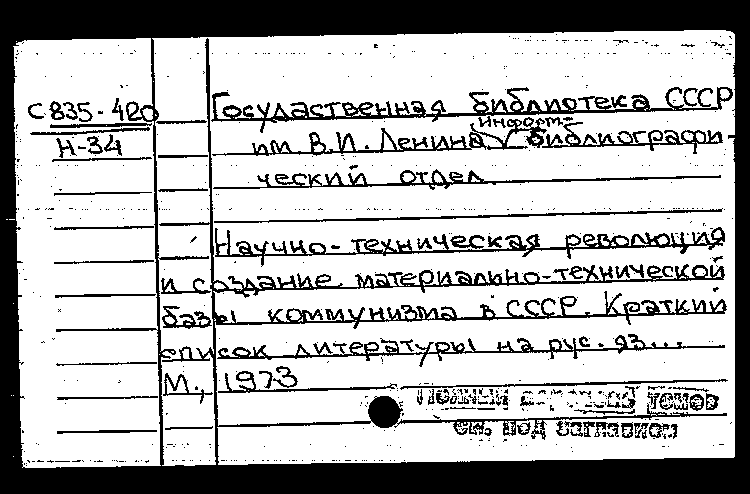 С 835-420
Н-34
Государственная библиотека СССР
Информ-
им. В.И. Ленина библиографи-
ческий отдел.
Научно-техническая революция
и создание материально-технической
базы коммунизма в СССР. Краткий
список литературы на рус. яз...
М., 1973
Полный перечень томов
см. под заглавием